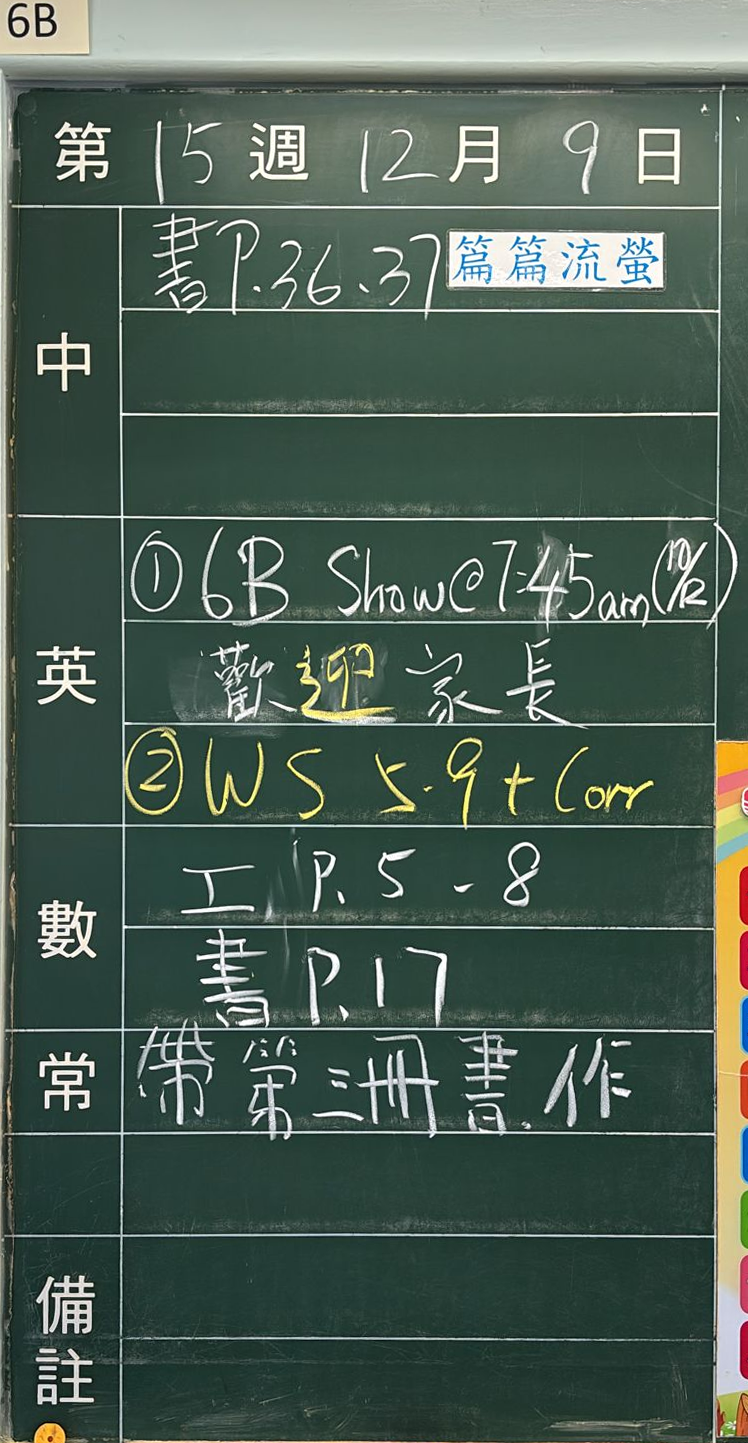 6B
第 15 週 12 月 9 日
中
書P.36、37 篇篇流螢
英
①6B Show@7:45am(10/12)
歡迎家長
②WS 5.9+Corr
數
工 P.5-8
書 P.17
常
帶第三冊書、作
備註